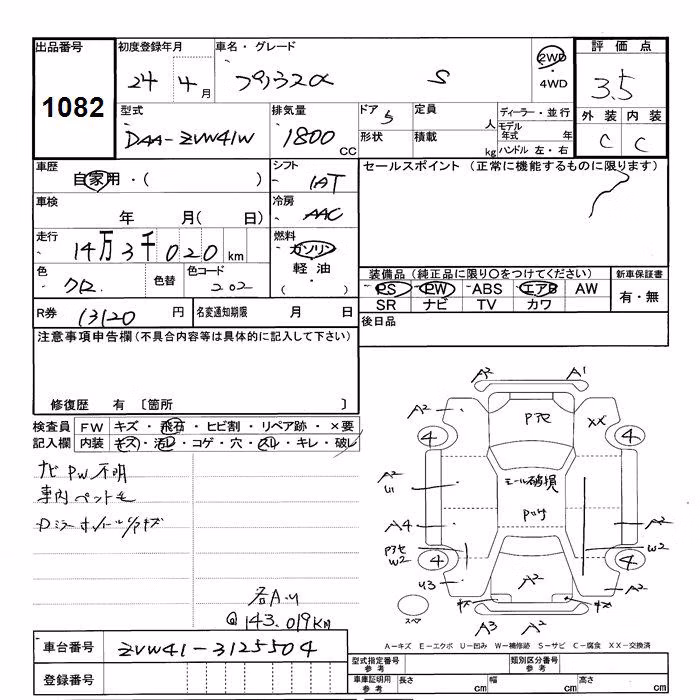 出品番号
1082
初度登録年月
24 4月
車名・グレード
プリウスα S
2WD
・4WD
評価点
3.5
外装 内装
C C
型式
DAA-ZVW41W
排気量
1800 CC
ドア 5
形状
定員 人
積載 kg
ディーラー・並行
モデル年式 年
ハンドル 左・右
車歴
自家用・( )
シフト
IAT
セールスポイント (正常に機能するものに限ります)
車検
年 月( 日)
冷房
AAC
走行
14万3千020km
燃料
ガソリン
軽油
・( )
色
クロ
色替
色コード
202
装備品(純正品に限り〇をつけてください)
PS PW ABS エアB AW
SR ナビ TV カワ
新車保証書
有・無
R券 13120 円
名変通知期限 月 日
後日品
注意事項申告欄(不具合内容等は具体的に記入して下さい)
修復歴 有 〔箇所 〕
検査員記入欄
FW キズ・飛石・ヒビ割・リペア跡・×要
内装 キズ・汚レ・コゲ・穴・スレ・キレ・破レ
ナビPW不明
車内ペット毛
Dミラーホイールリアキズ
各A.U
Q 143,019KM
A2 A1
A2 XX
4 4
A2
U1
モール破損
A4 A2
W2
W2
4 4
U3 A2 A2
スペア
A3 A2
A-キズ E-エクボ U-凹み W-補修跡 S-サビ C-腐食 XX-交換済
車台番号 ZVW41-3125504
登録番号
型式指定番号 参考
類別区分番号 参考
車庫証明用 参考
長さ cm 幅 cm 高さ cm